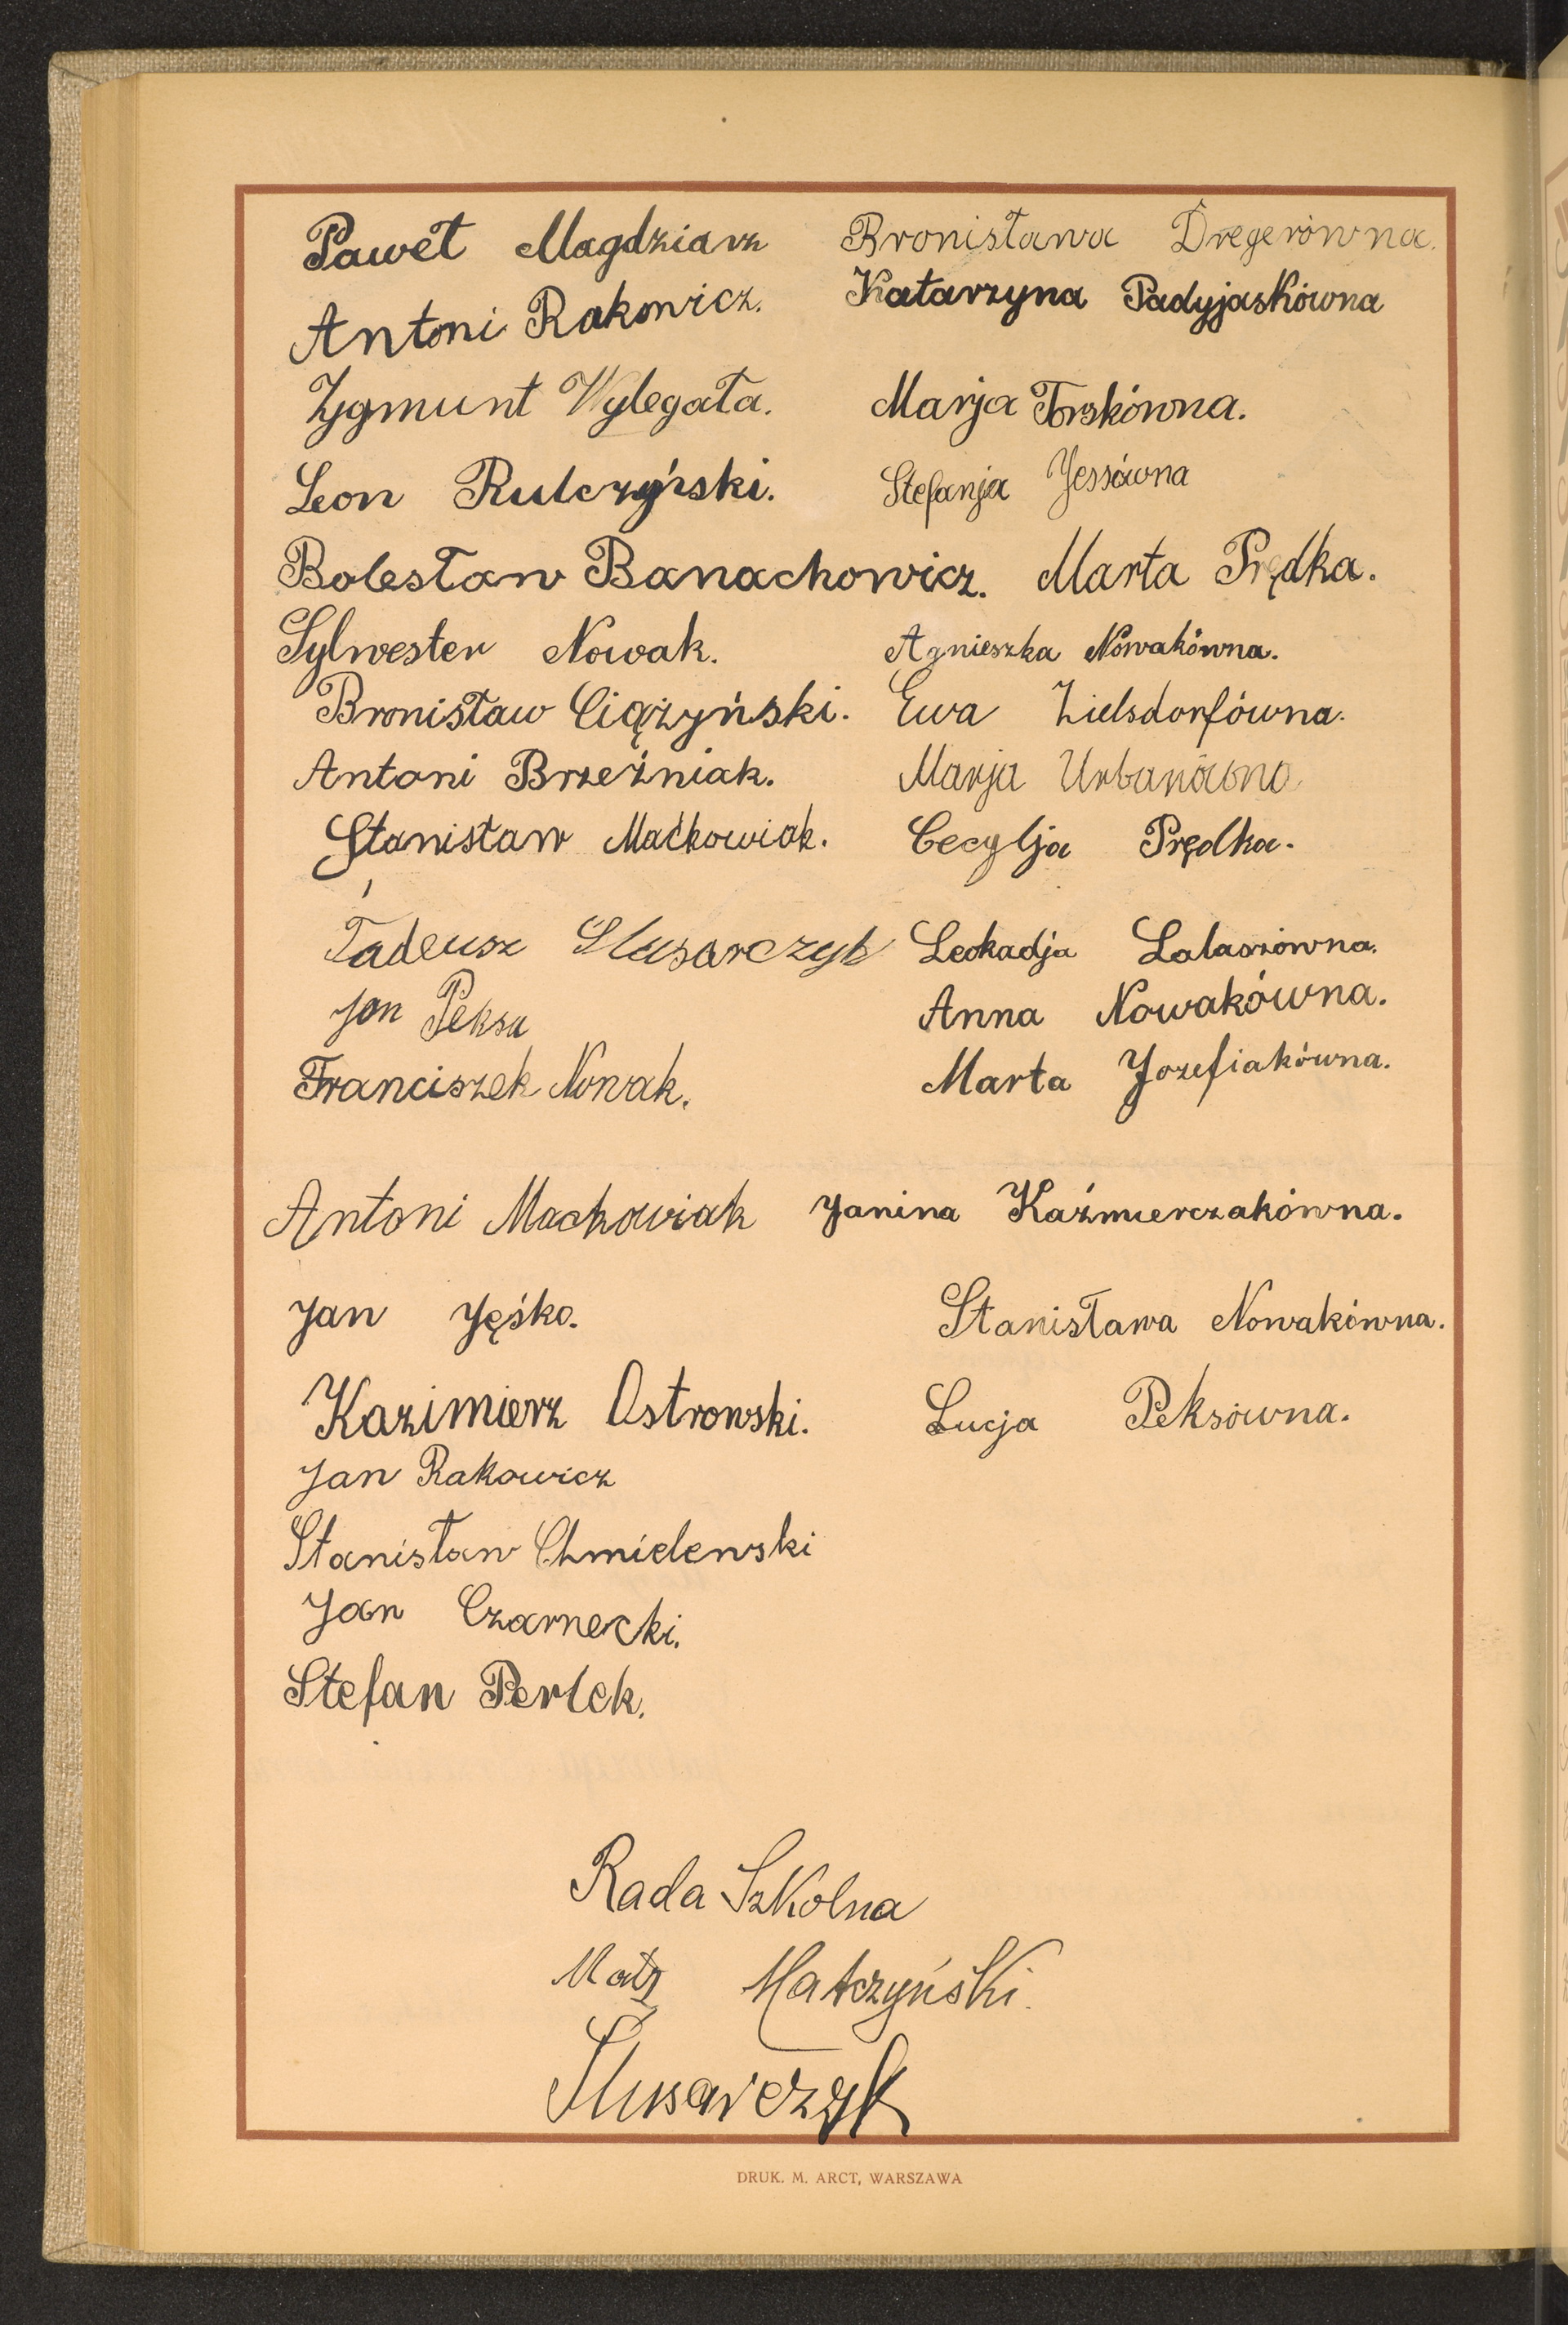 Paweł Magdziarz Bronisława Dregerówna.
Antoni Rakowicz. Katarzyna Padyjaskówna
Zygmunt Wylegała. Marja Torskówna.
Leon Rulczyński. Stefanja Jessówna
Bolesław Banachowicz. Marta Prędka.
Sylwester Nowak. Agnieszka Nowakówna.
Bronisław Ciążyński. Ewa Zielsdorfówna.
Antoni Brzeźniak. Marja Urbanówna
Stanisław Maćkowiak. Cecylja Prędka.
Tadeusz Ślusarczyk Leokadja Lalaszówna.
Jan Peksa Anna Nowakówna.
Franciszek Nowak. Marta Jozefiakówna.
Antoni Machowiak Janina Kaźmierczakówna.
Jan Jęśko. Stanisława Nowakówna.
Kazimierz Ostrowski. Lucja Peksówna.
Jan Rakowicz
Stanisław Chmielewski
Jan Czarnecki.
Stefan Perlek.
Rada Szkolna
Matczyński.
Ślusarczyk
DRUK. M. ARCT, WARSZAWA